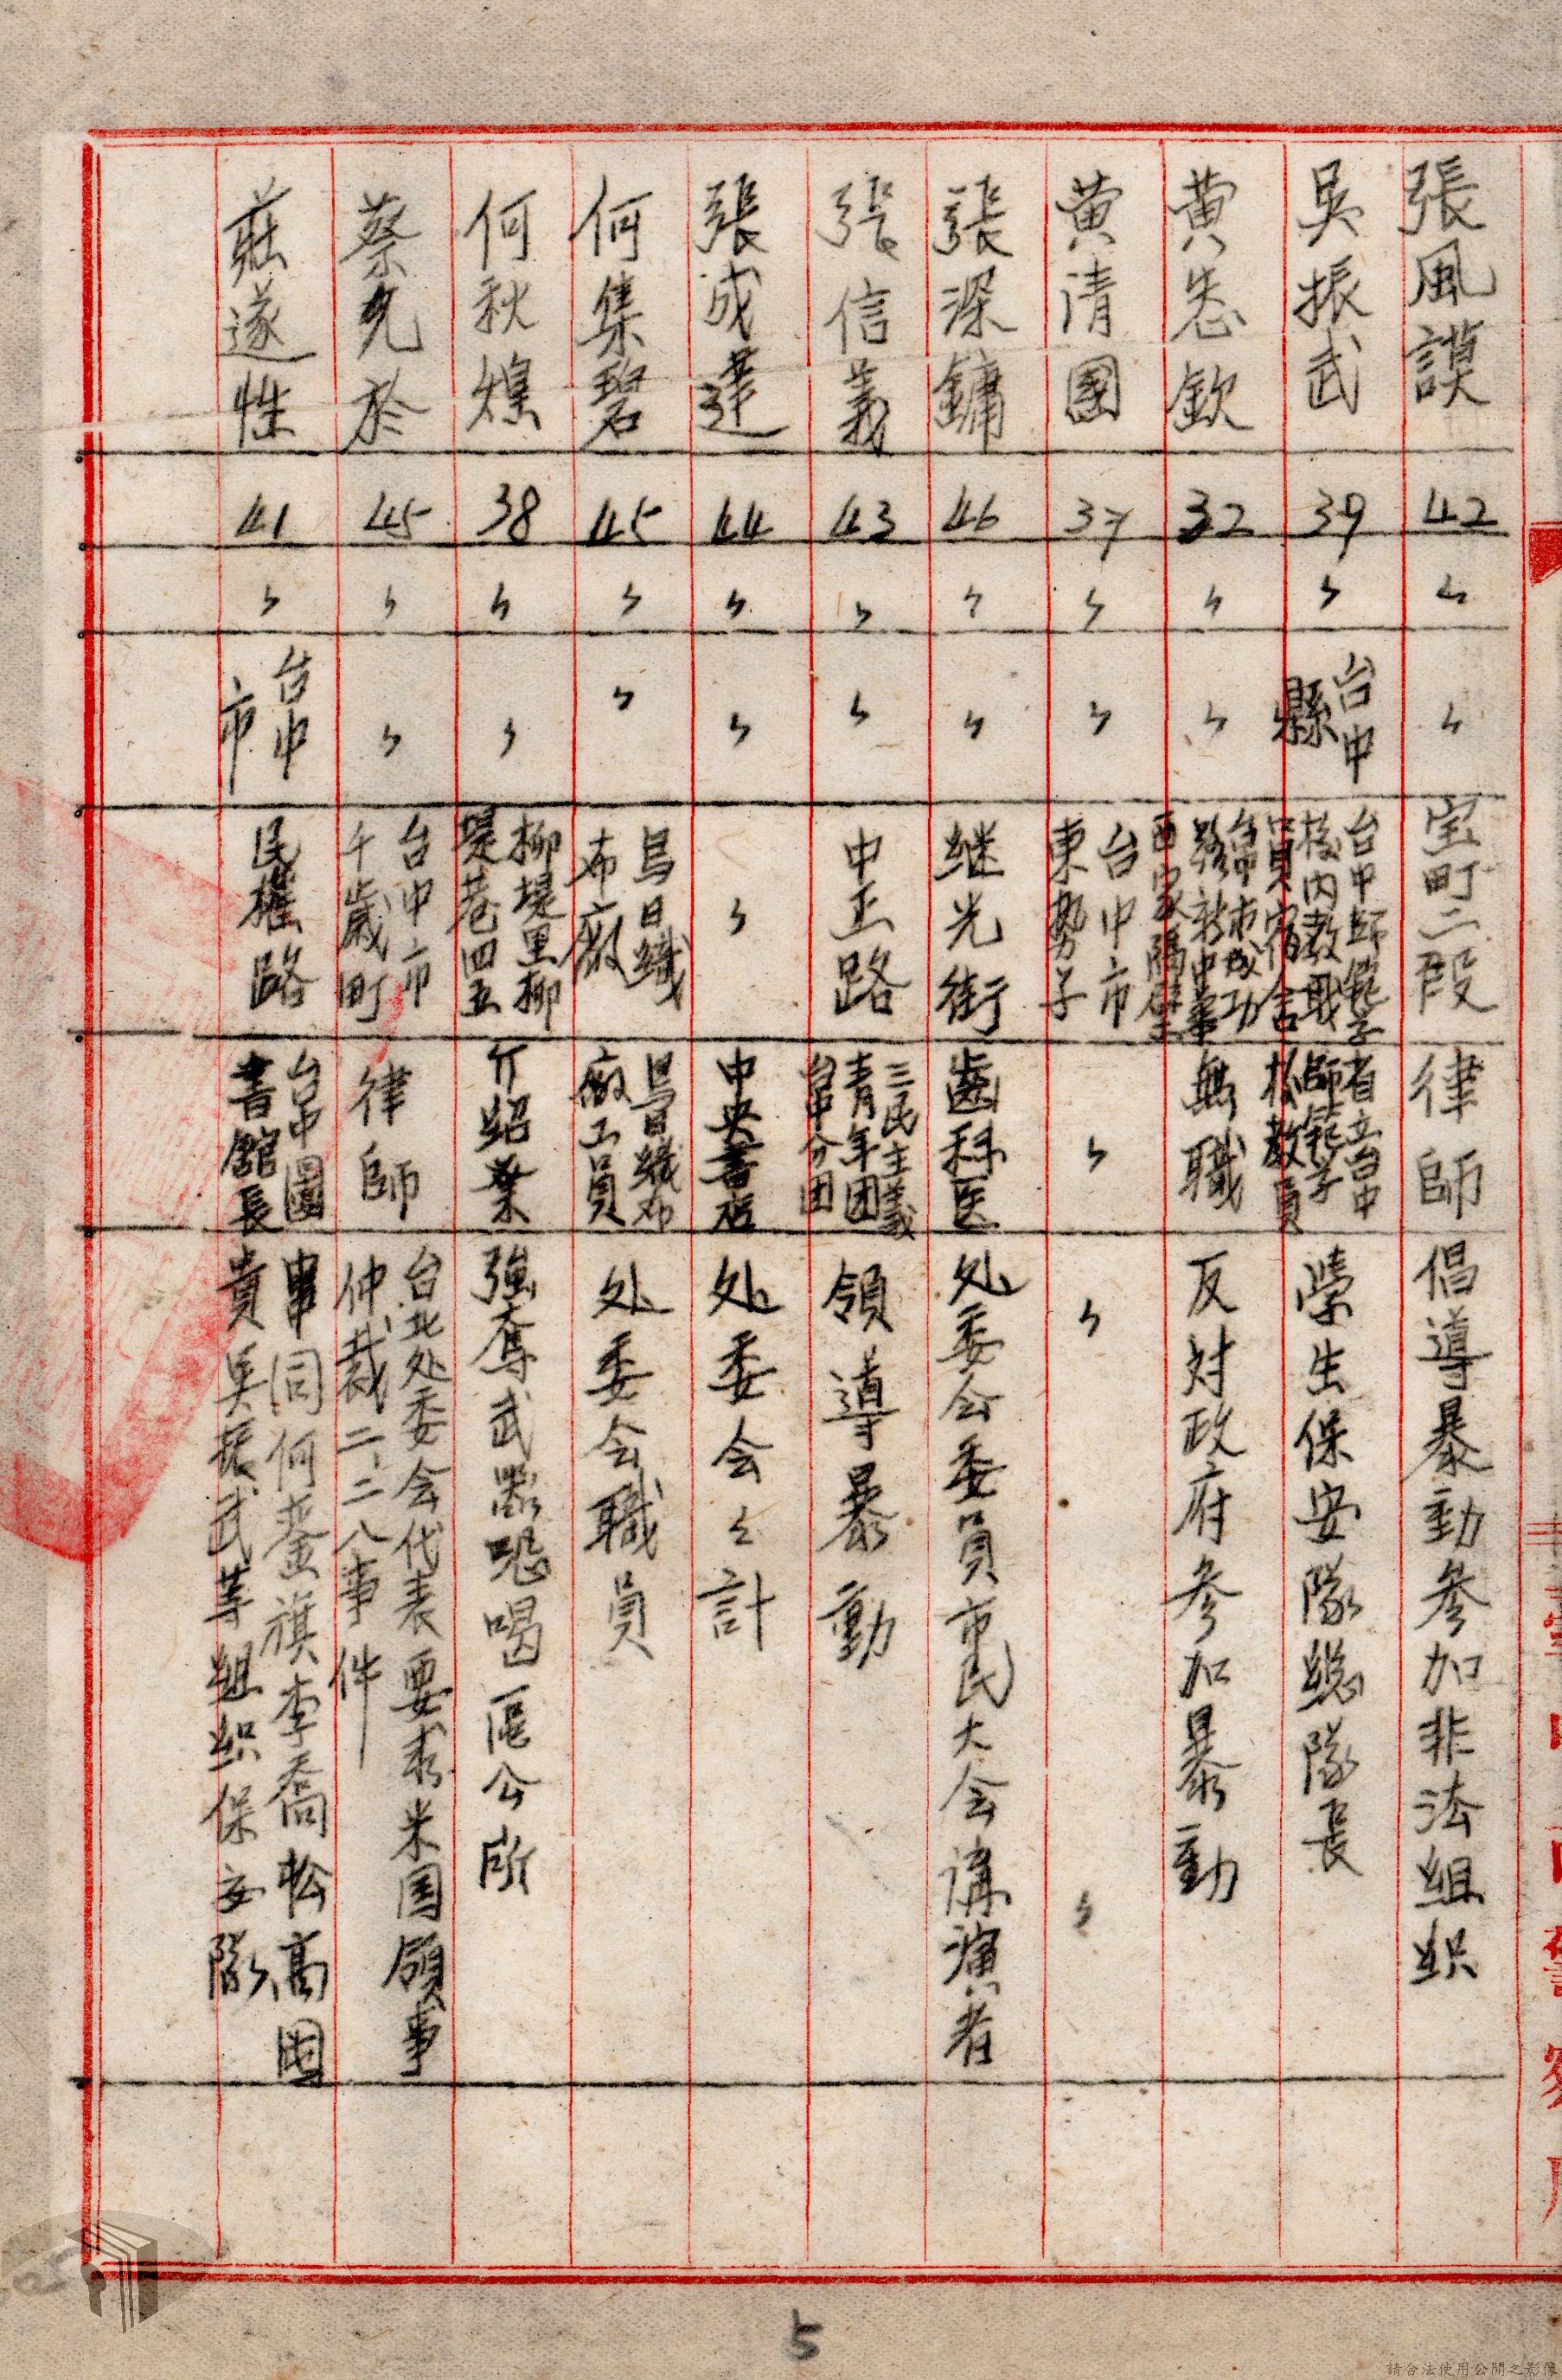 張風謨 42 〃 〃 宝町二段 律師 倡導暴動参加非法組织
吳振武 39 〃 台中縣 台中師範学校内教職員宿舍 省立台中師範学校教員 学生保安隊総隊長
黄忠欽 32 〃 〃 台中市成功路 西 隔壁 無職 反対政府参加暴動
黄清園 37 〃 〃 台中市東勢子 〃 〃 〃
張深鏞 46 〃 〃 继光街 齒科医 处委会委員市民大会講演者
張信義 43 〃 〃 中正路 三民主義青年团台中分团 領導暴動
張成達 44 〃 〃 〃 中央書店 处委会々計
何集碧 45 〃 〃 烏日織布廠 烏日織布廠工員 处委会職員
何秋煌 38 〃 〃 柳堤里柳堤巷四五 介紹業 強奪武器恐喝區公所
蔡先於 45 〃 〃 台中市千歳町 律師 台北处委会代表要求米国領事仲裁二、二八事件
莊遂性 41 〃 台中市 民權路 台中圖書館長 串同何鑾旗李喬松高園貴吳振武等組织保安隊
5
請合法使用公開之影像